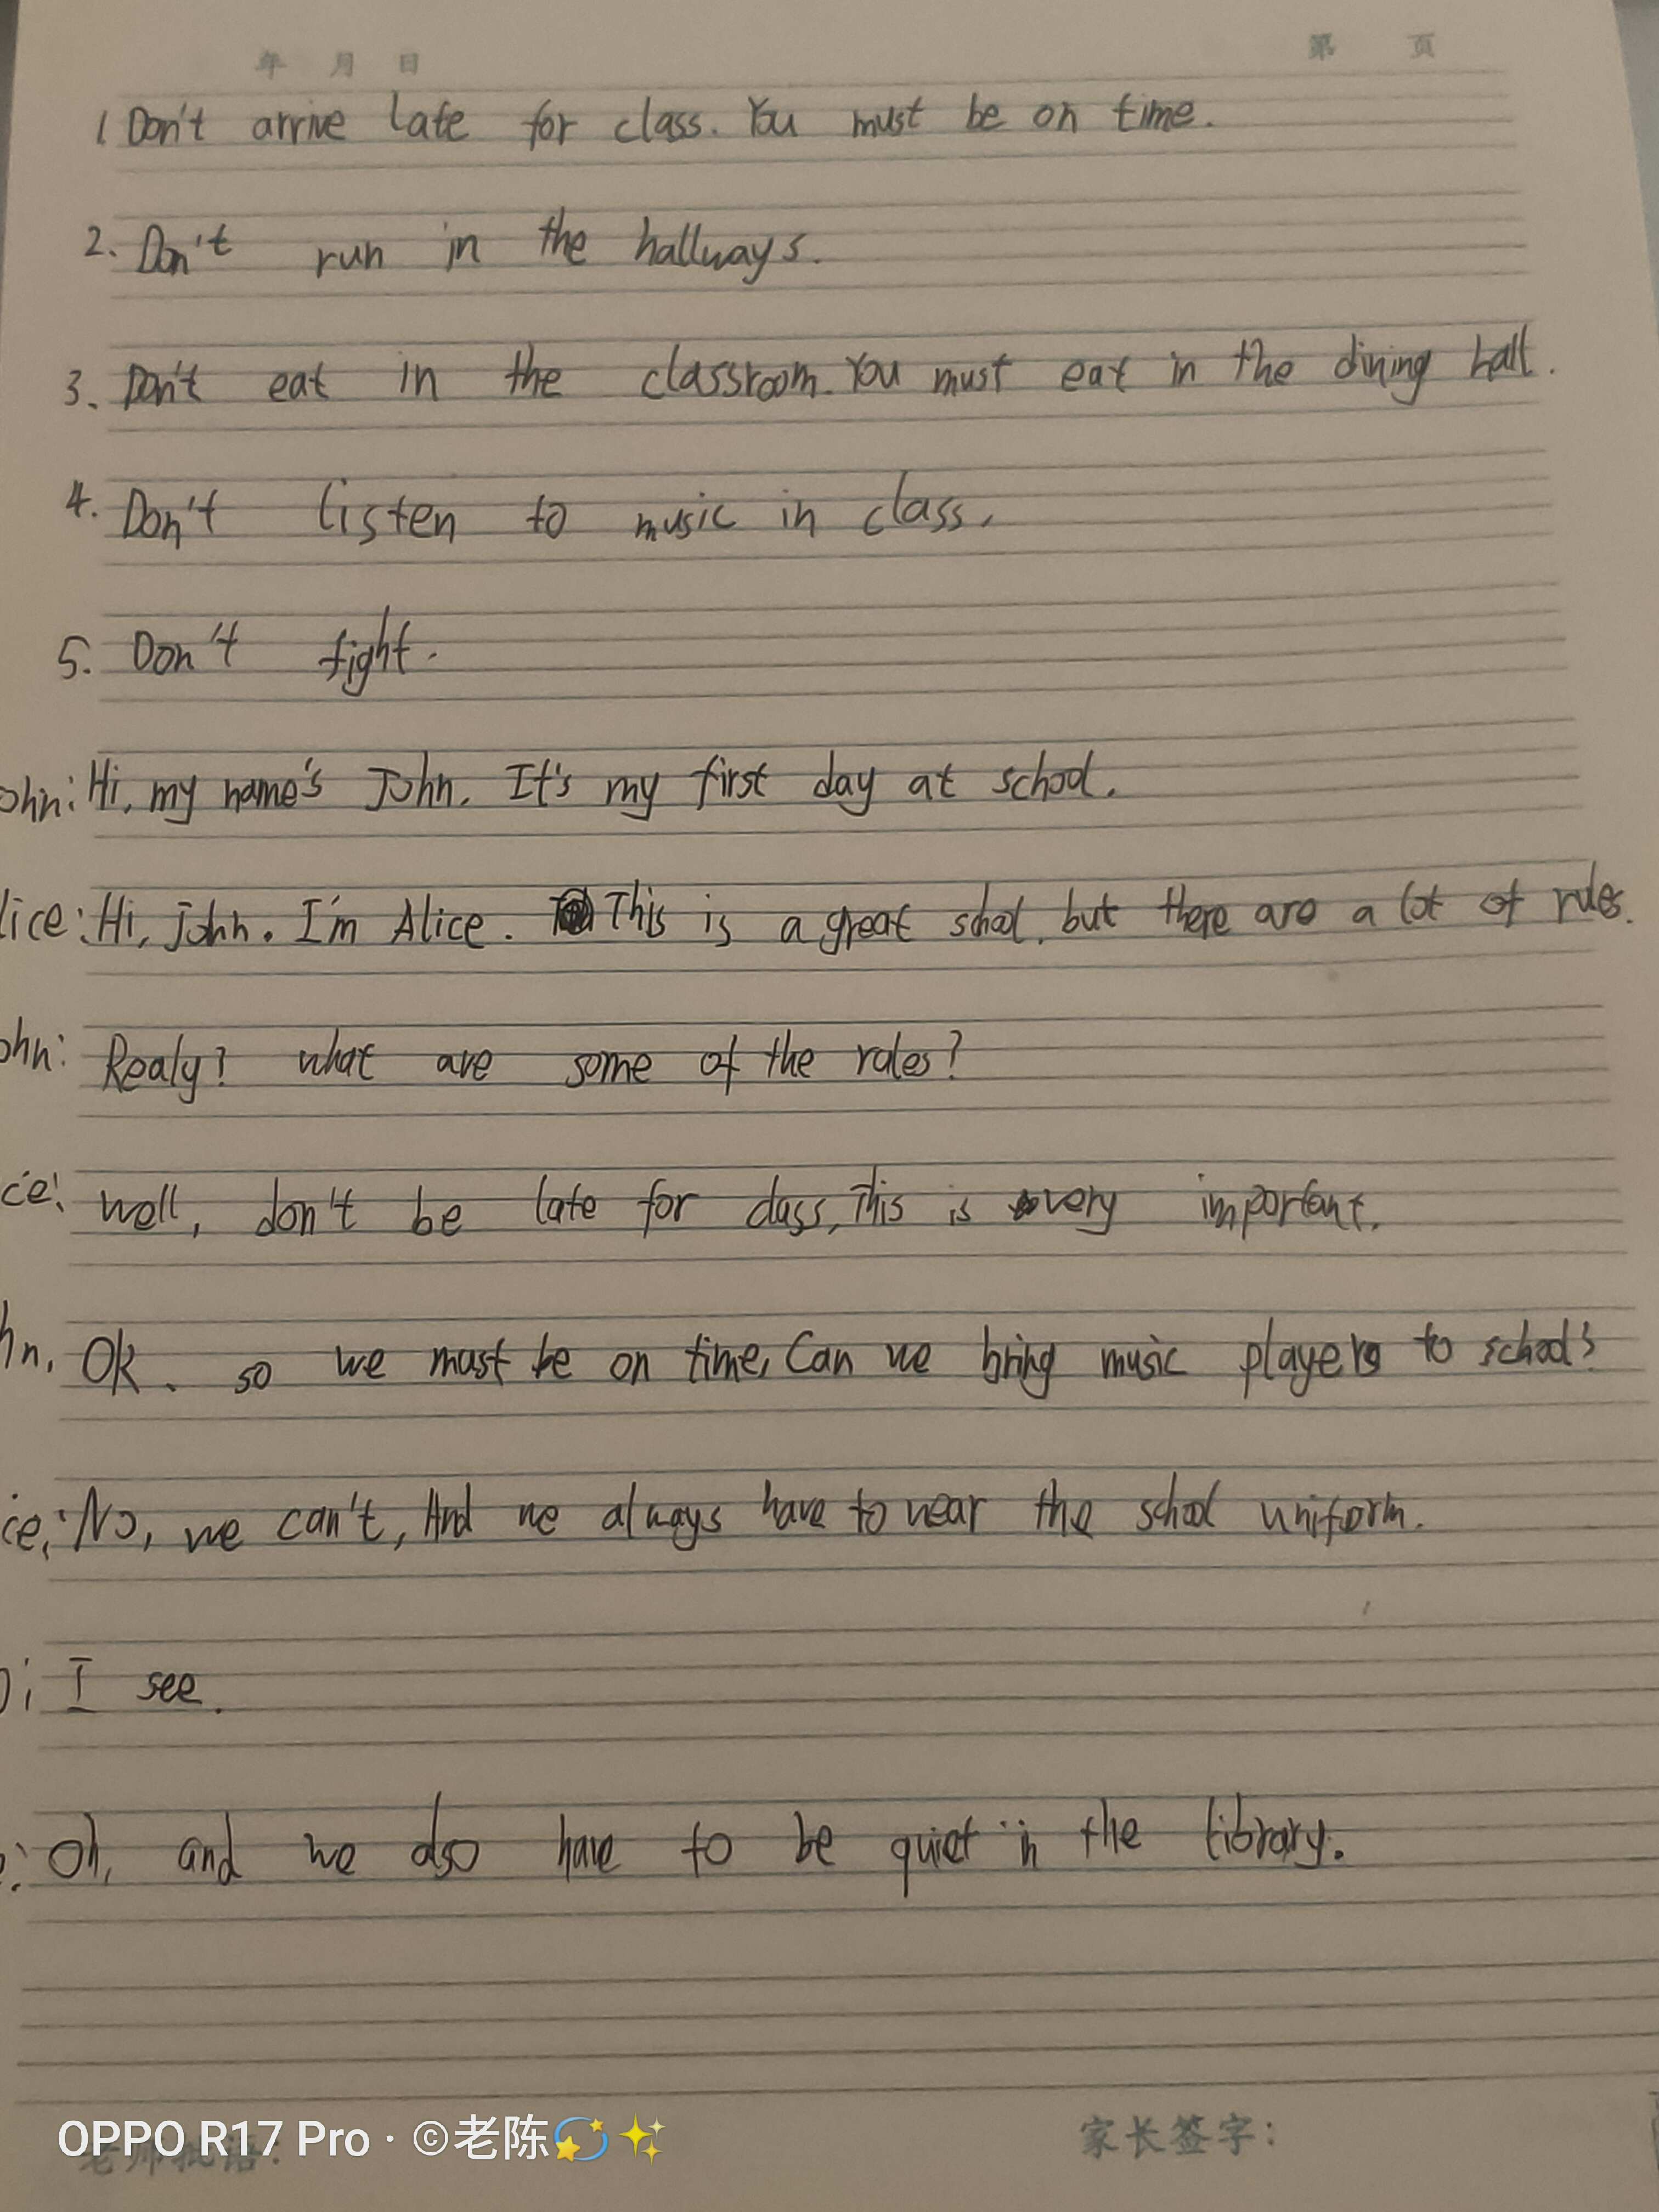 年 月 日 第 页
1. Don't arrive late for class. You must be on time.
2. Don't run in the hallways.
3. Don't eat in the classroom. You must eat in the dining hall.
4. Don't listen to music in class.
5. Don't fight.
ohn: Hi, my name's John. It's my first day at school.
lice: Hi, John. I'm Alice. This is a great school, but there are a lot of rules.
ohn: Realy? what are some of the rules?
ce: well, don't be late for class, This is very important.
hn, Ok, so we must be on time, Can we bring music players to school?
ce: No, we can't, And we always have to wear the school uniform.
: I see.
: Oh, and we also have to be quiet in the library.
老师批语: 家长签字:
OPPO R17 Pro · ©老陈💫✨